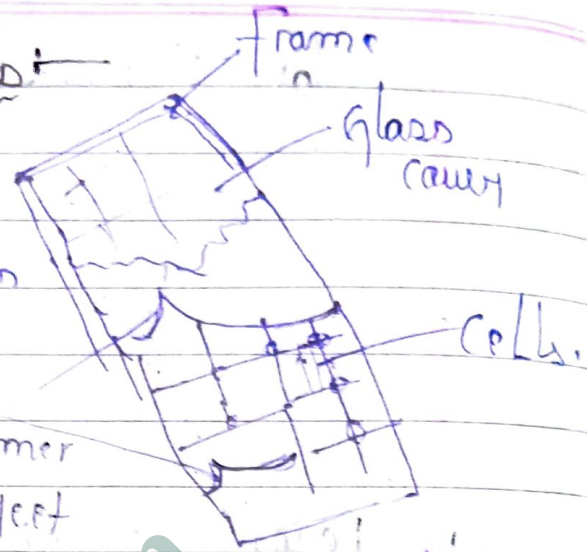 Frame
Glass
cover
cells.
mer